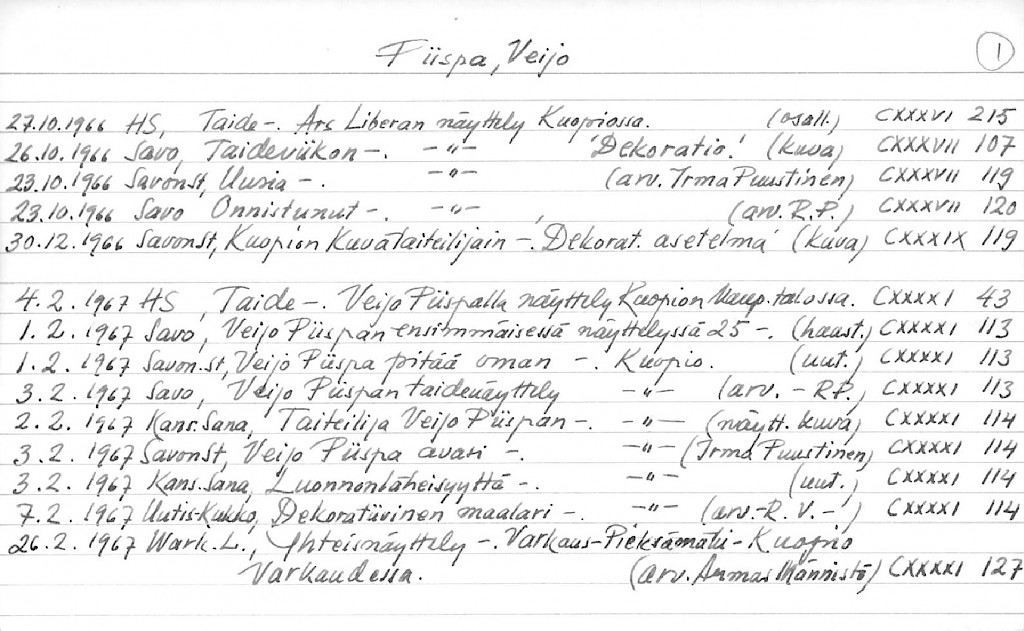 Fiispa, Veijo 1
27.10.1966 HS, Taide-. Ars Liberan näyttely Kuopiossa. (osall.) CXXXVI 215
26.10.1966 Savo, Taideviikon-. -"- 'Dekoratio.' (kuva) CXXXVII 107
23.10.1966 SavonSt, Uusia-. -"- (arv. Irma Puustinen) CXXXVII 119
23.10.1966 Savo Onnistunut-. -"-, (arv. R.P.) CXXXVII 120
30.12.1966 SavonSt, Kuopion Kuvataiteilijain-. Dekorat. asetelma' (kuva) CXXXIX 119
4.2.1967 HS, Taide-. Veijo Piispalla näyttely Kuopion Kaup.talossa. CXXXXI 43
1.2.1967 Savo, Veijo Piispan ensimmäisessä näyttelyssä 25-. (haast.) CXXXXI 113
1.2.1967 Savon.st, Veijo Piispa pitää oman-. Kuopio. (uut.) CXXXXI 113
3.2.1967 Savo, Veijo Piispan taidenäyttely -"- (arv. - R.P.) CXXXXI 113
2.2.1967 Kans.Sana, Taiteilija Veijo Piispan-. -"- (näytt. kuva) CXXXXI 114
3.2.1967 SavonSt, Veijo Piispa avasi-. -"- (Irma Puustinen) CXXXXI 114
3.2.1967 Kans.Sana, Luonnonläheisyyttä-. -"- (uut.) CXXXXI 114
7.2.1967 Uutis-Kukko, Dekoratiivinen maalari-. -"- (arv.-R.V.-) CXXXXI 114
26.2.1967 Wark.L., Yhteisnäyttely-. Varkaus-Pieksämäki-Kuopio
Varkaudessa. (arv. Armas Männistö) CXXXXI 127